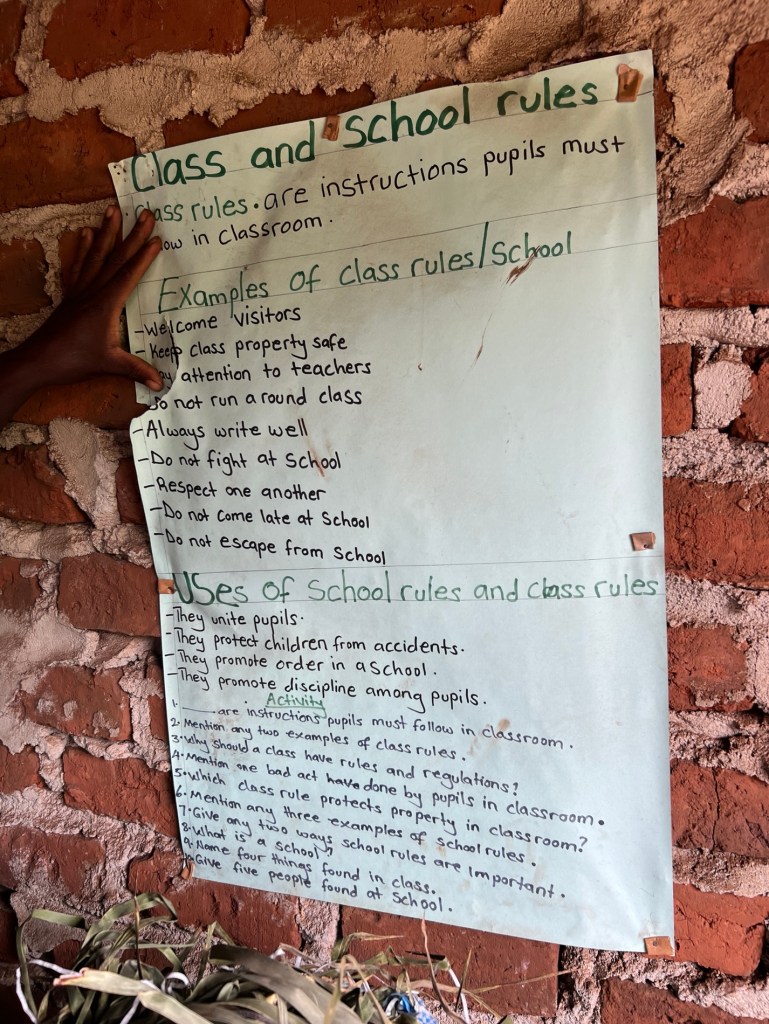 Class and school rules
Class rules. are instructions pupils must
low in classroom.
Examples of class rules/School
-Welcome visitors
-Keep class property safe
ay attention to teachers
Do not run around class
-Always write well
-Do not fight at School
-Respect one another
-Do not come late at School
-Do not escape from School
Uses of School rules and class rules
-They unite pupils.
-They protect children from accidents.
-They promote order in a School.
-They promote discipline among pupils.
Activity
1. ______ are instructions pupils must follow in classroom.
2. Mention any two examples of class rules.
3. Why should a class have rules and regulations?
4. Mention one bad act have done by pupils in classroom.
5. Which class rule protects property in classroom?
6. Mention any three examples of school rules.
7. Give any two ways school rules are important.
8. What is a school?
9. Name four things found in class.
10. Give five people found at School.